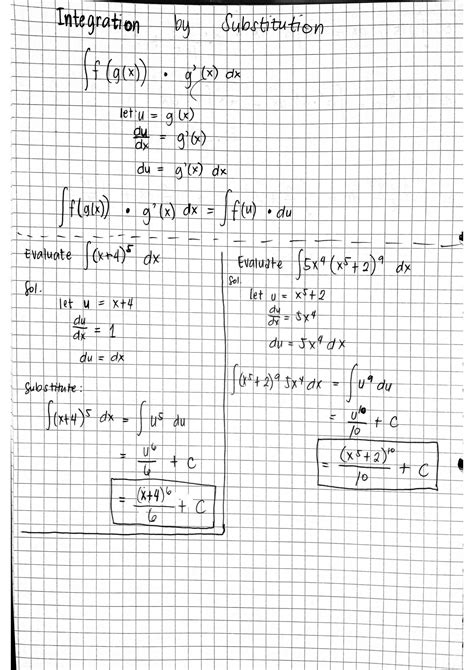 Integration by Substitution
∫f(g(x)) · g'(x) dx
let u = g(x)
du/dx = g'(x)
du = g'(x) dx
∫f(g(x)) · g'(x) dx = ∫f(u) · du
Evaluate ∫(x+4)⁵ dx
Sol.
let u = x+4
du/dx = 1
du = dx
Substitute:
∫(x+4)⁵ dx = ∫u⁵ du
= u⁶/6 + C
= (x+4)⁶/6 + C
Evaluate ∫5x⁴(x⁵+2)⁹ dx
Sol.
let u = x⁵+2
du/dx = 5x⁴
du = 5x⁴ dx
∫(x⁵+2)⁹ 5x⁴ dx = ∫u⁹ du
= u¹⁰/10 + C
= (x⁵+2)¹⁰/10 + C